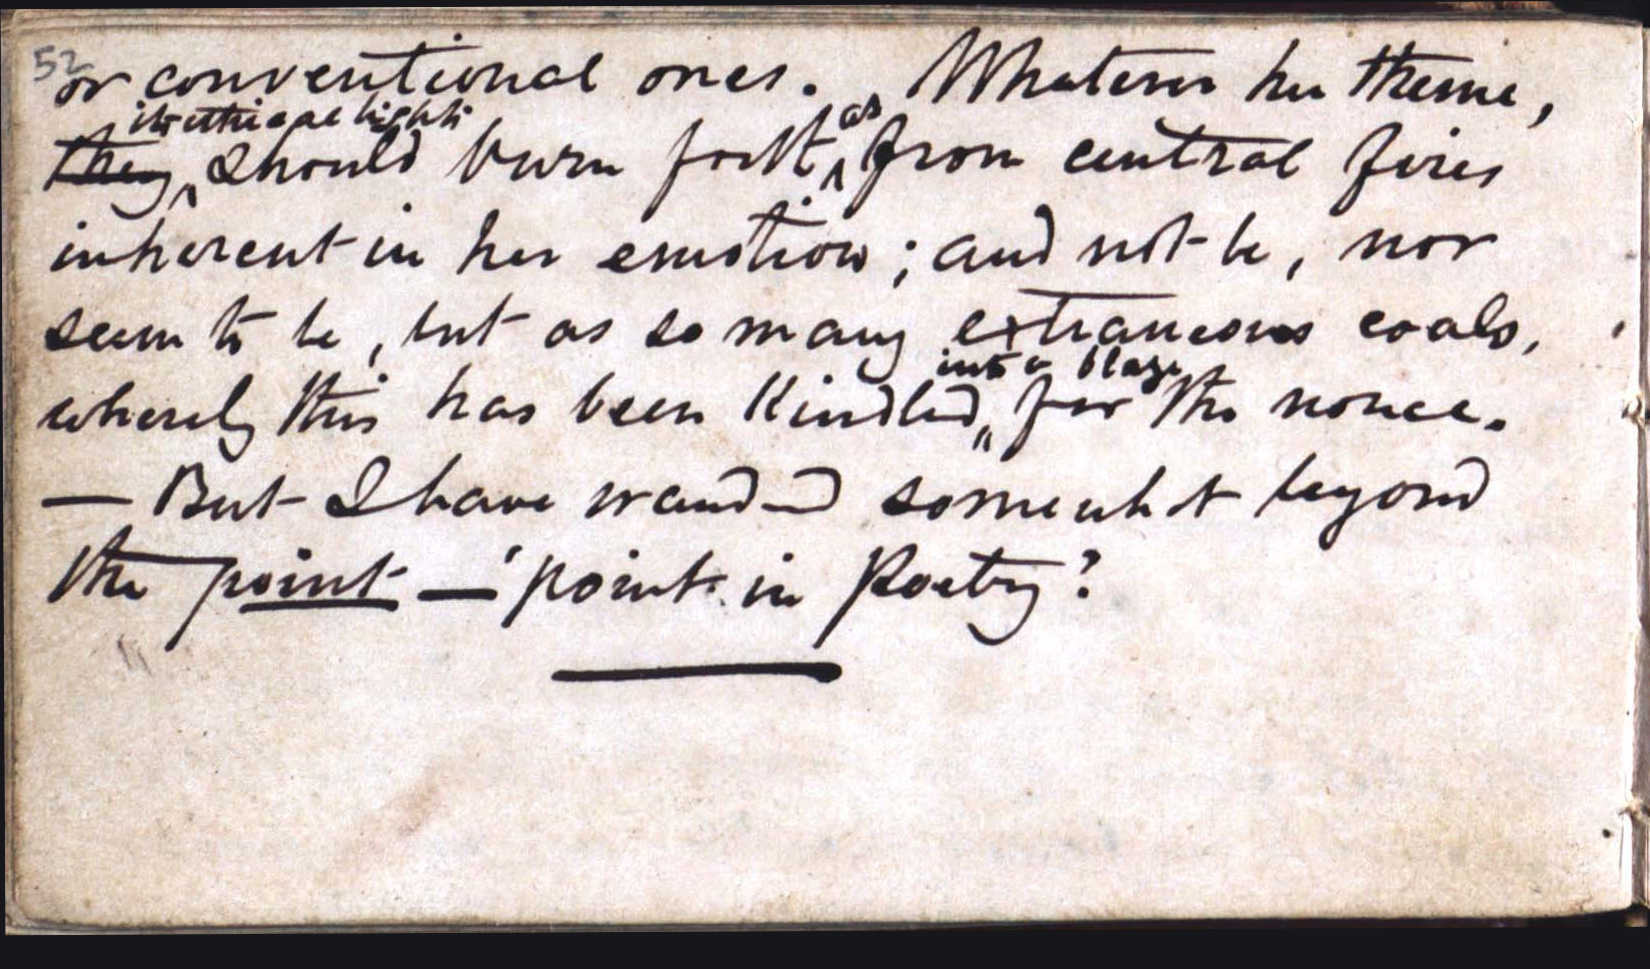 52
or conventional ones. Whatever her theme,
its ethical lights as
they should burn forth from central fires
inherent in her emotion; and not be, nor
seem to be, but as so many extraneous coals,
into a blaze
whereby this has been kindled for the nonce.
— But I have wand—d somewht beyond
the point — 'point in Poetry?